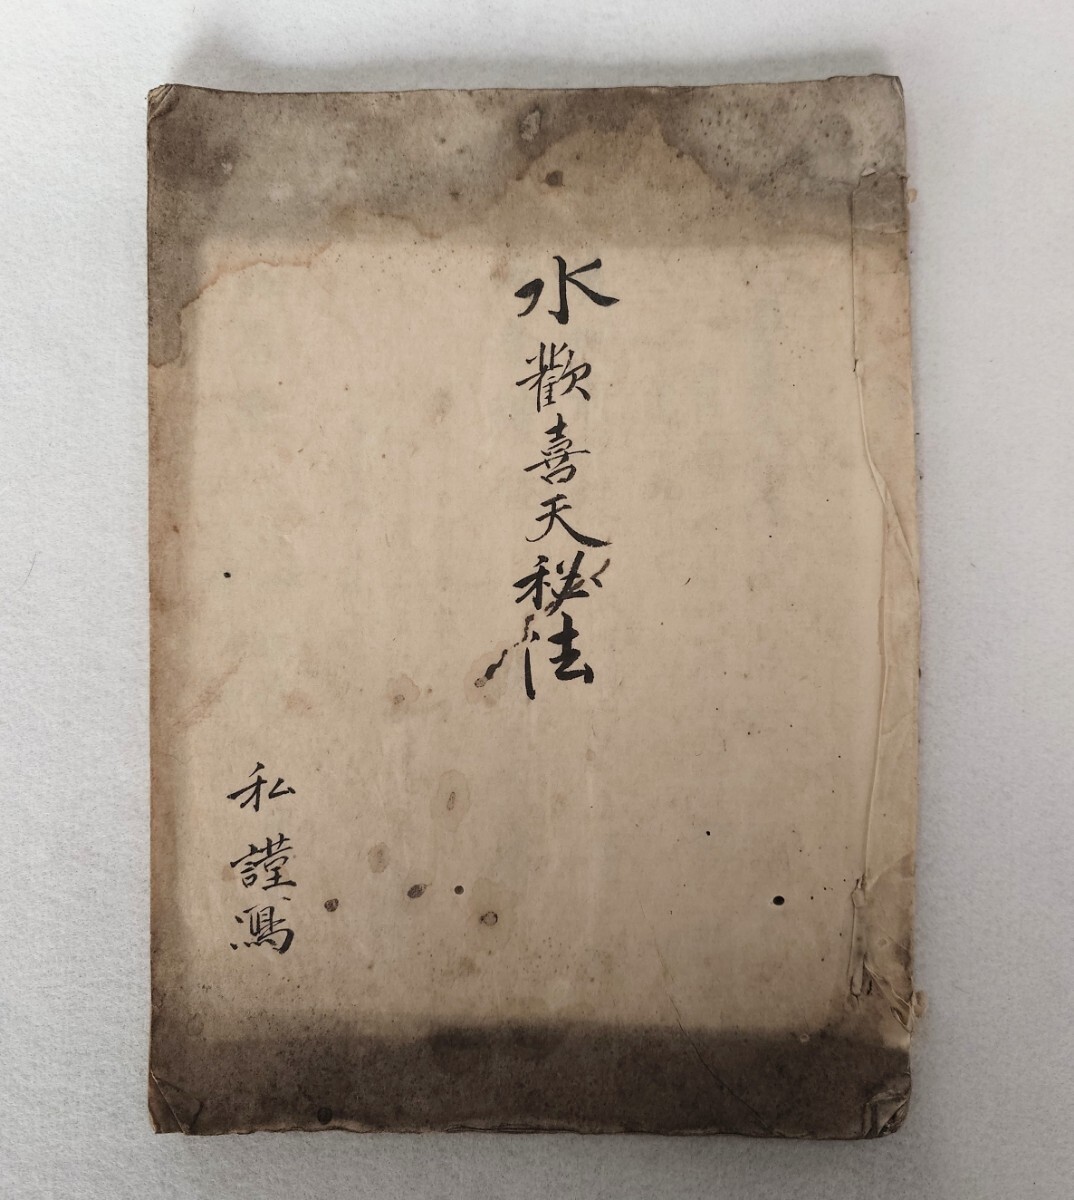 水歡喜天秘法
私謹寫